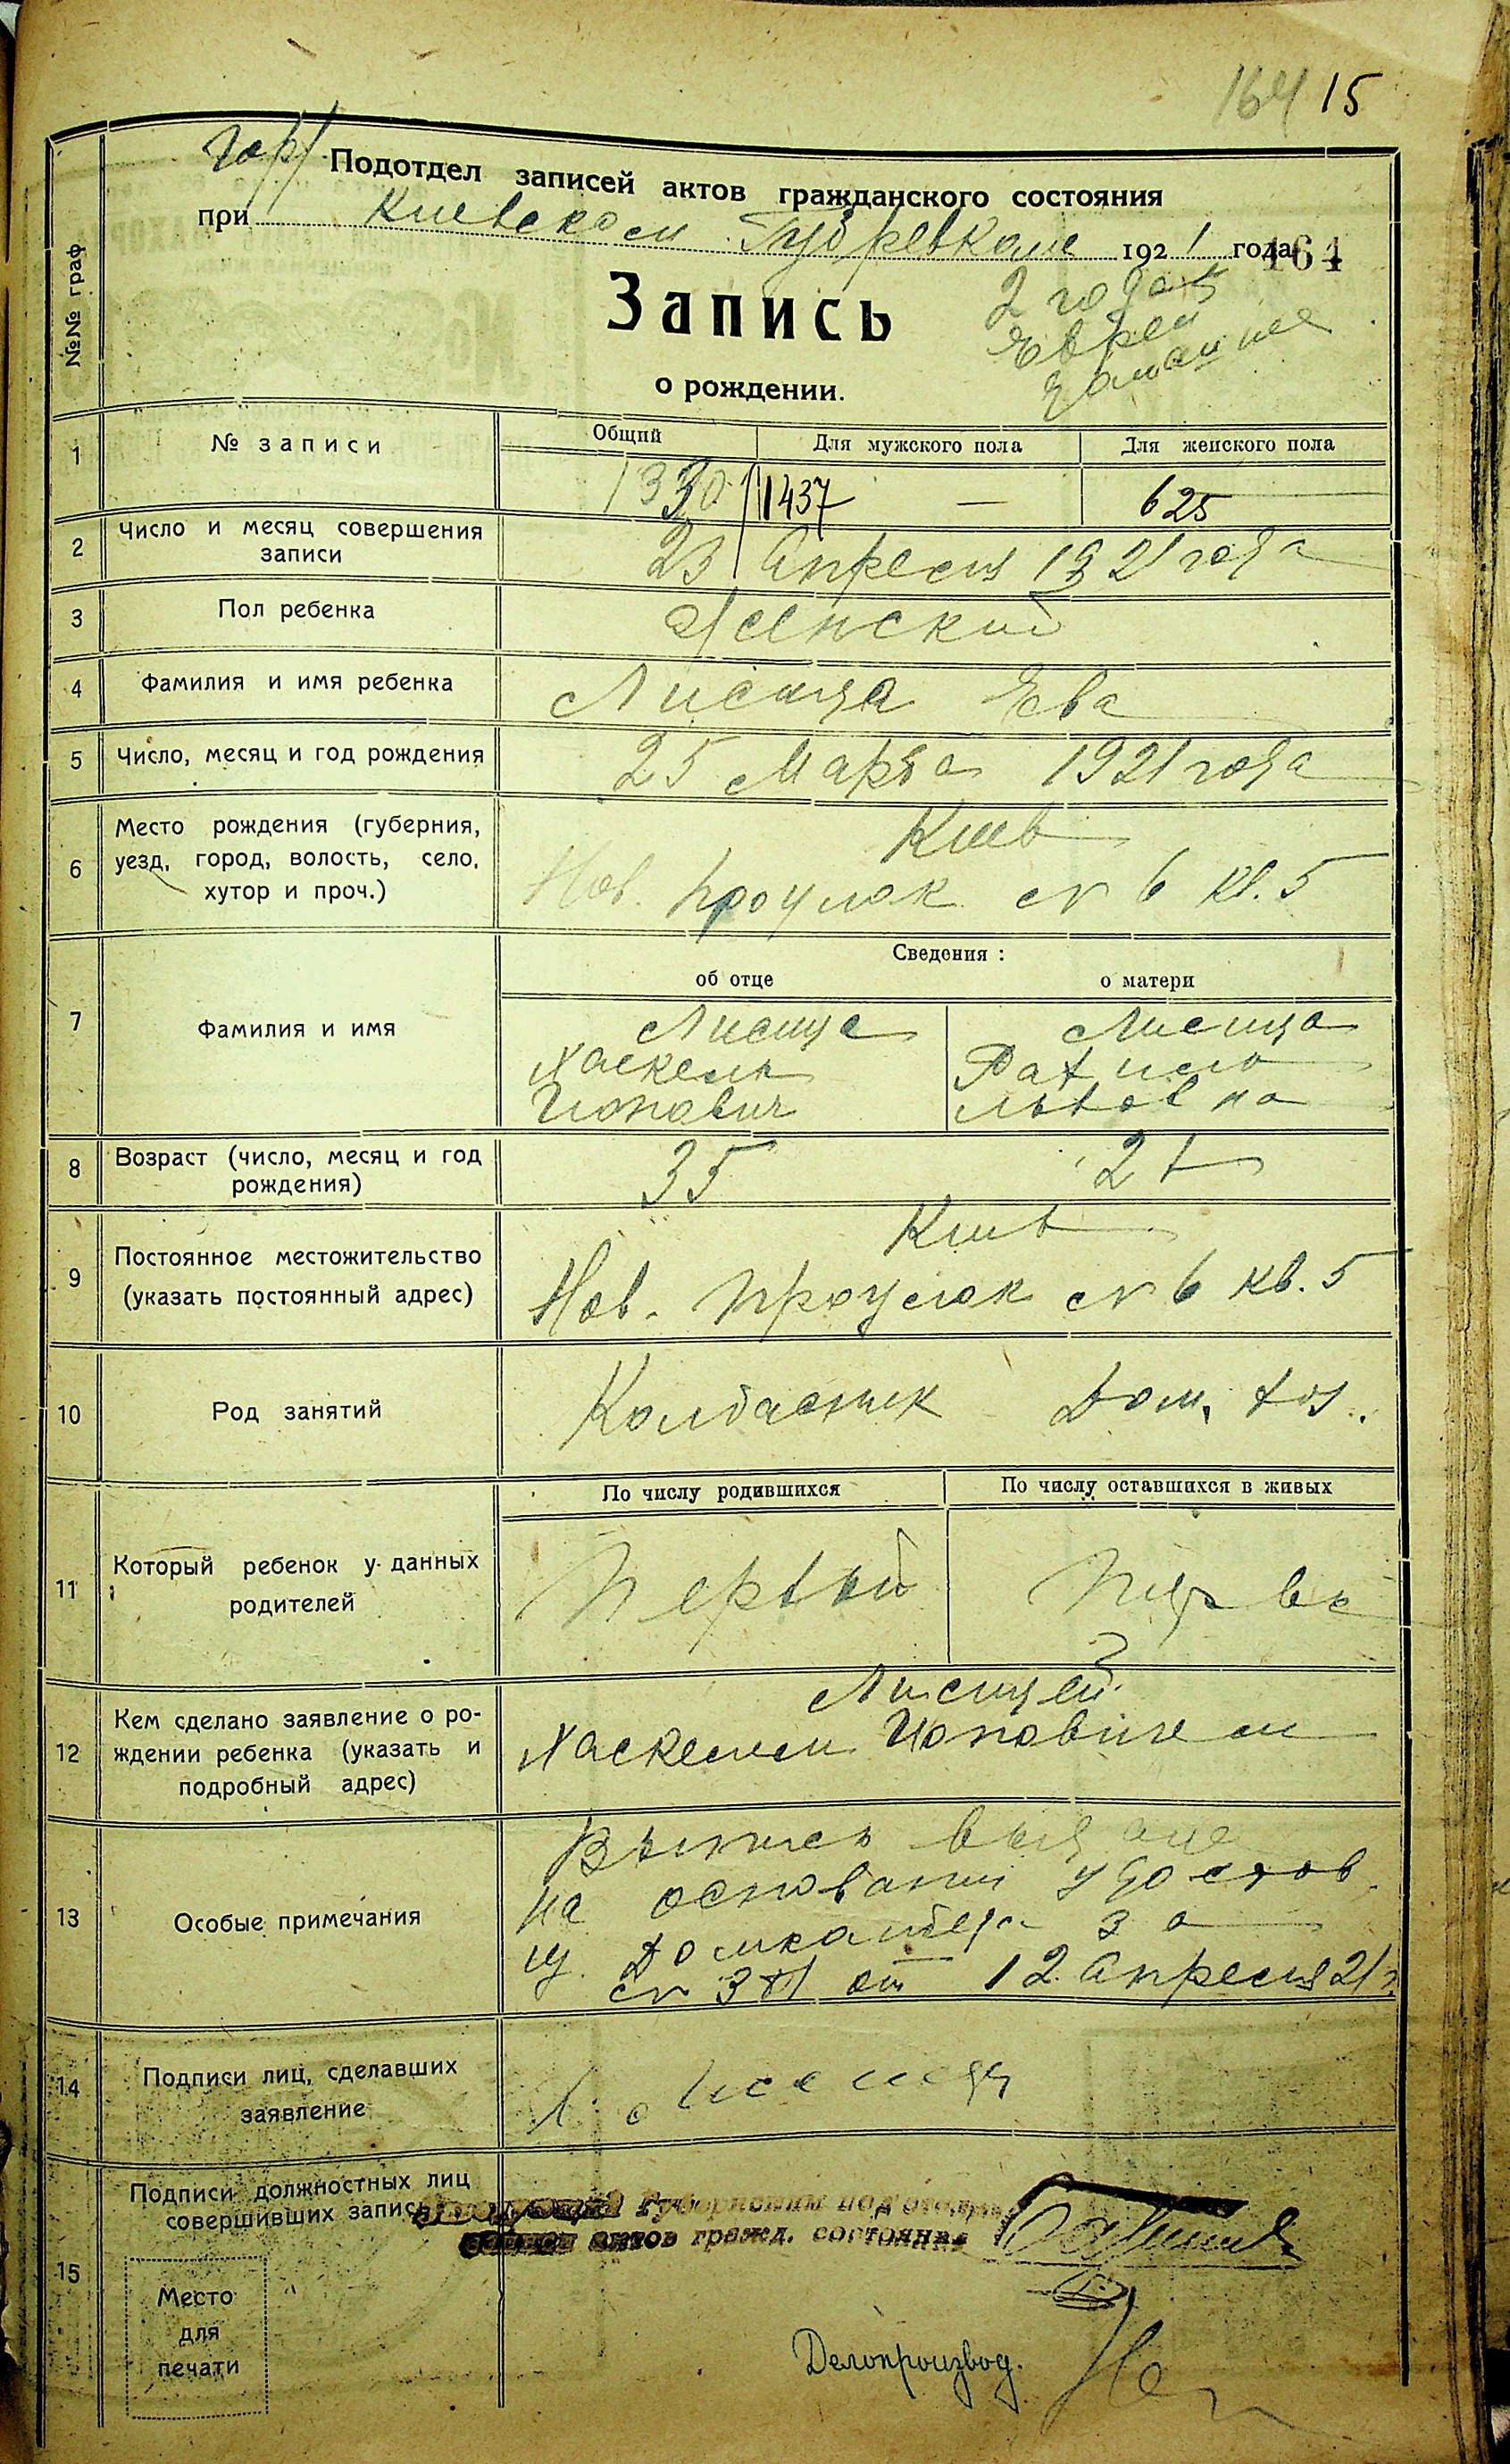 164 15
Гор. Подотдел записей актов гражданского состояния
при Киевском Губревкоме 1921 года 164
Запись
о рождении.
2 года
Евреи
домашнее
№№ граф
1 № записи
Общий Для мужского пола Для женского пола
1330 1437 — 625
2 Число и месяц совершения
записи
23 Апреля 1921 года
3 Пол ребенка Женский
4 Фамилия и имя ребенка Лисица Ева
5 Число, месяц и год рождения 25 Марта 1921 года
6 Место рождения (губерния,
уезд, город, волость, село,
хутор и проч.)
Киев
Нов. проулок № 6 кв. 5
Сведения:
об отце о матери
7 Фамилия и имя
Лисица Лисица
Хаскель Рахиль
Ионович Львовна
8 Возраст (число, месяц и год
рождения)
35 21
9 Постоянное местожительство
(указать постоянный адрес)
Киев
Нов. проулок № 6 кв. 5
10 Род занятий Колбасник Дом. хоз.
По числу родившихся По числу оставшихся в живых
11 Который ребенок у данных
родителей
Первый
12 Кем сделано заявление о ро-
ждении ребенка (указать и
подробный адрес)
Лисицей
Хаскелем Ионовичем
13 Особые примечания
Выпись выдана
на основании удостов.
Домкомбеда за
№ от 12 Апреля 21 г.
14 Подписи лиц, сделавших
заявление
15 Подписи должностных лиц
совершивших запись
Губернским подотделом
актов гражд. состояния
Место
для
печати
Делопроизвод.